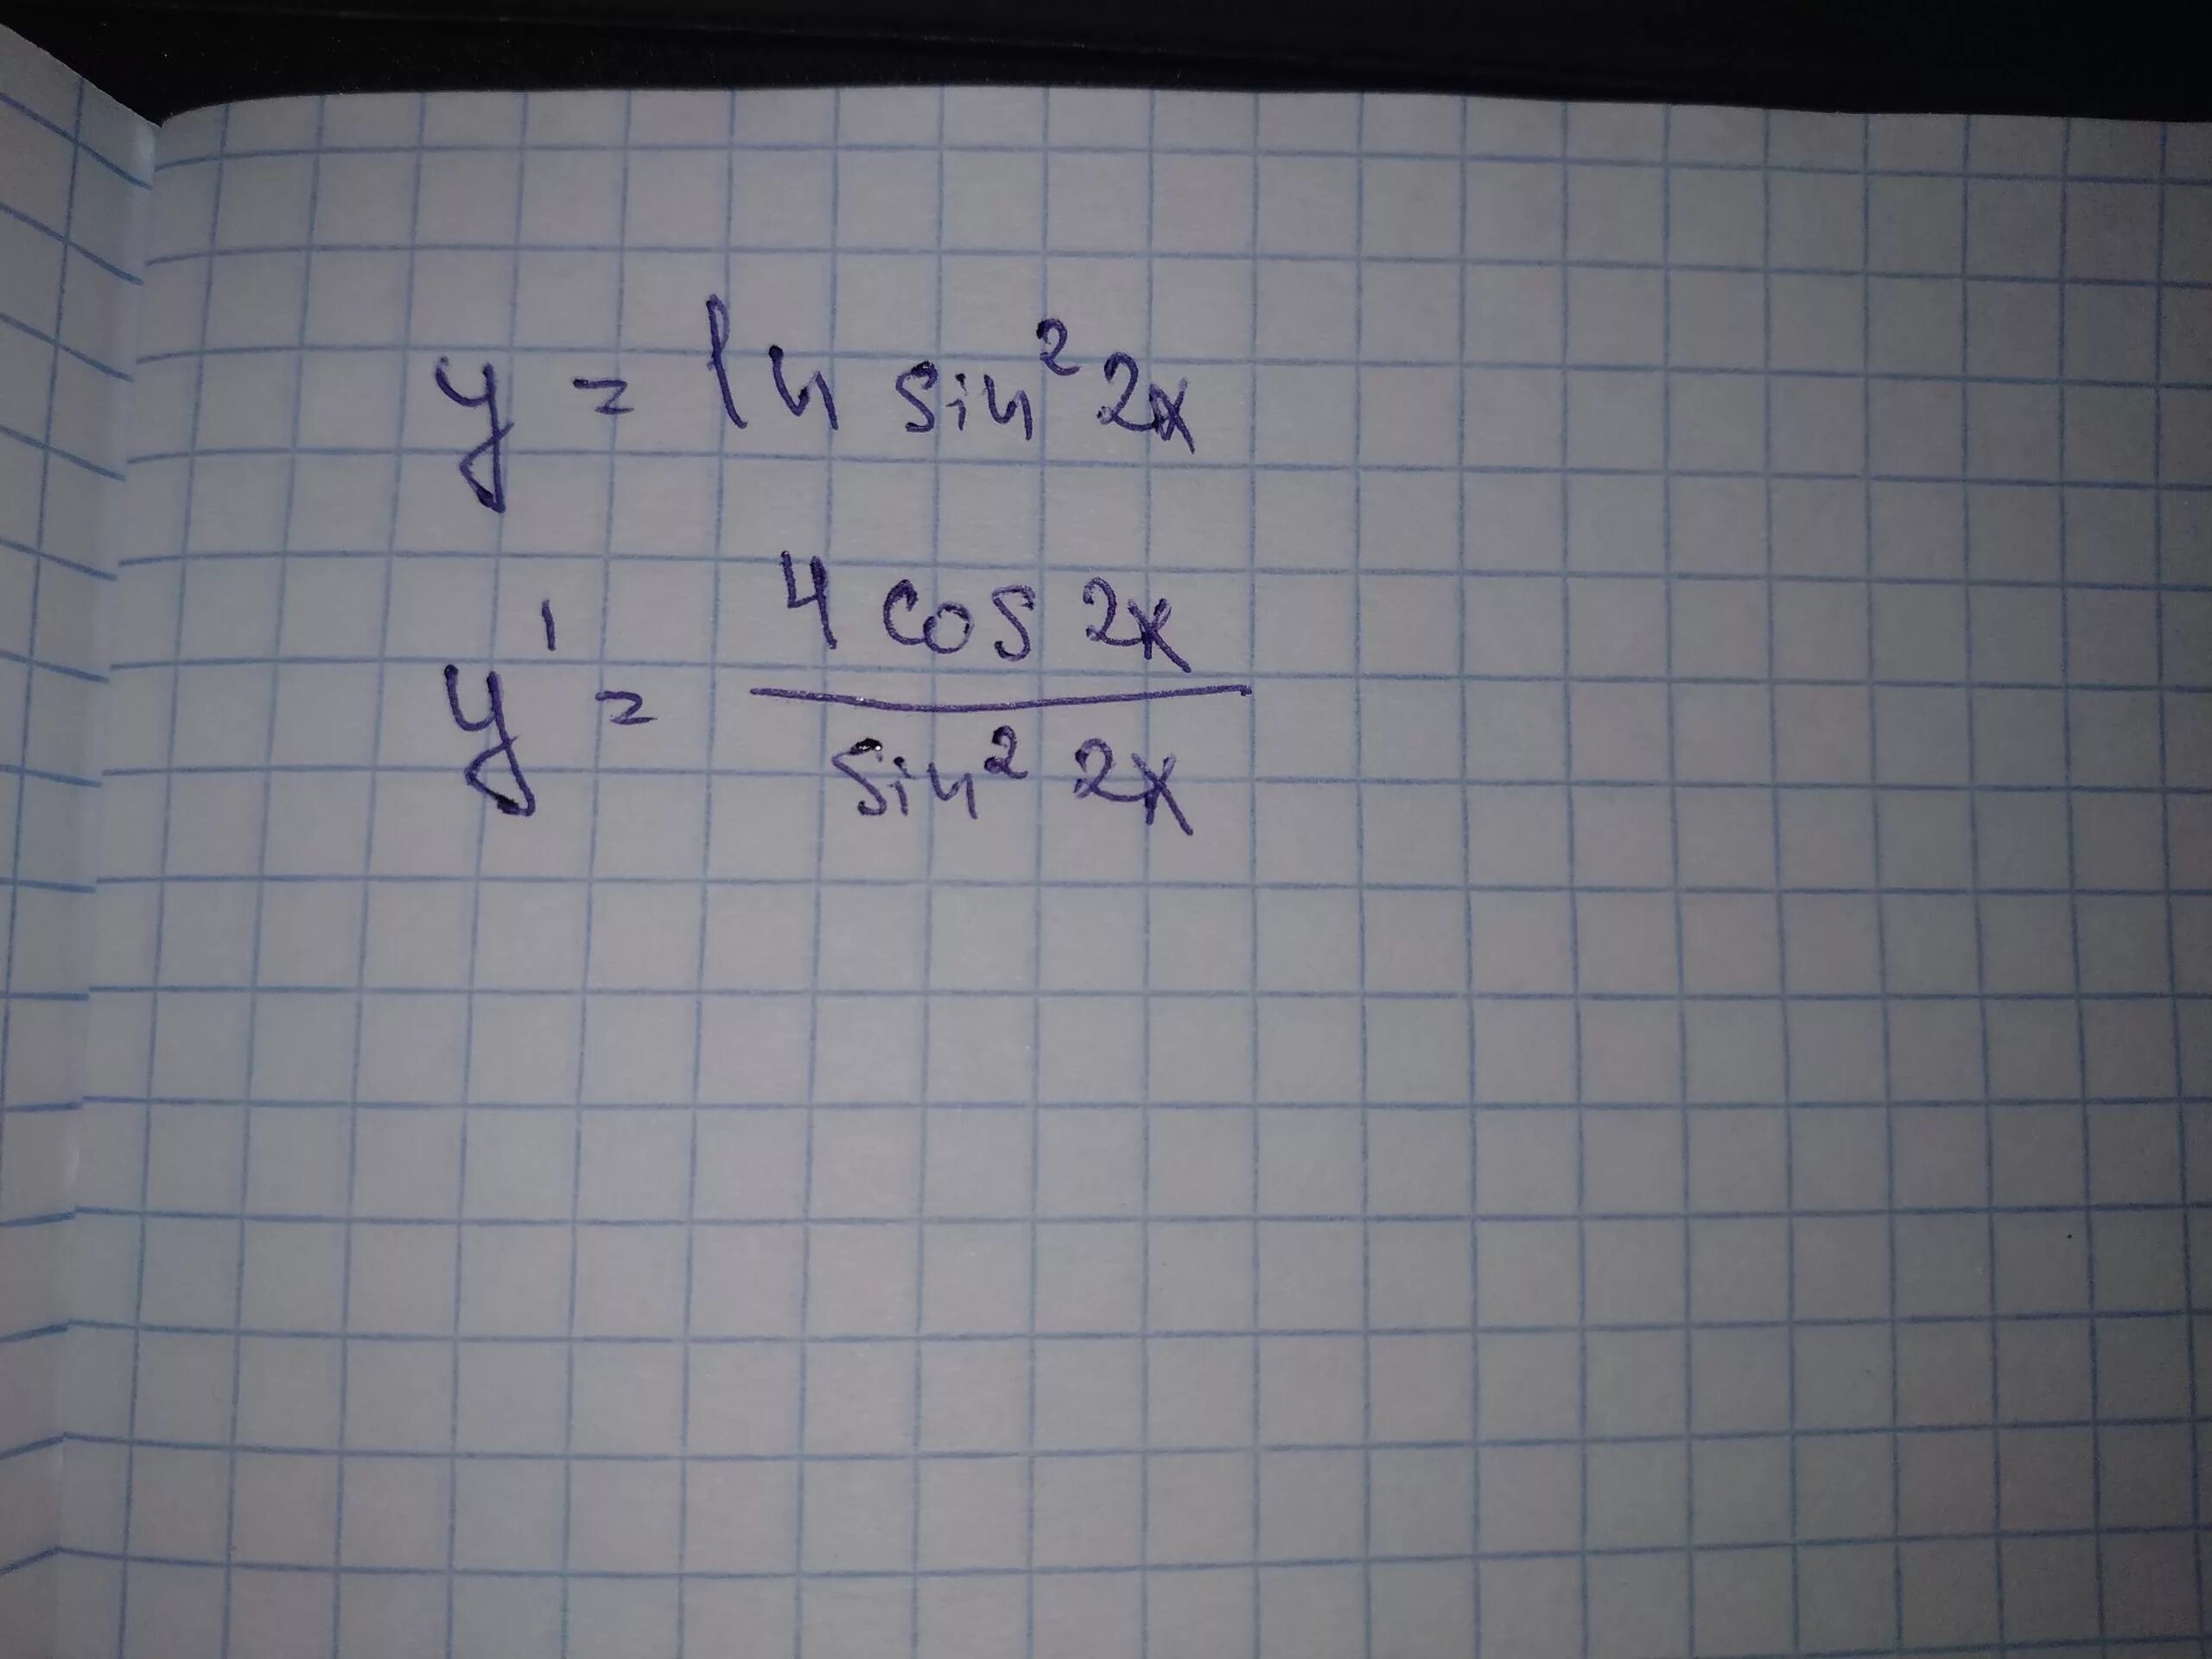 y = ln sin² 2x
y' = 4 cos 2x / sin² 2x